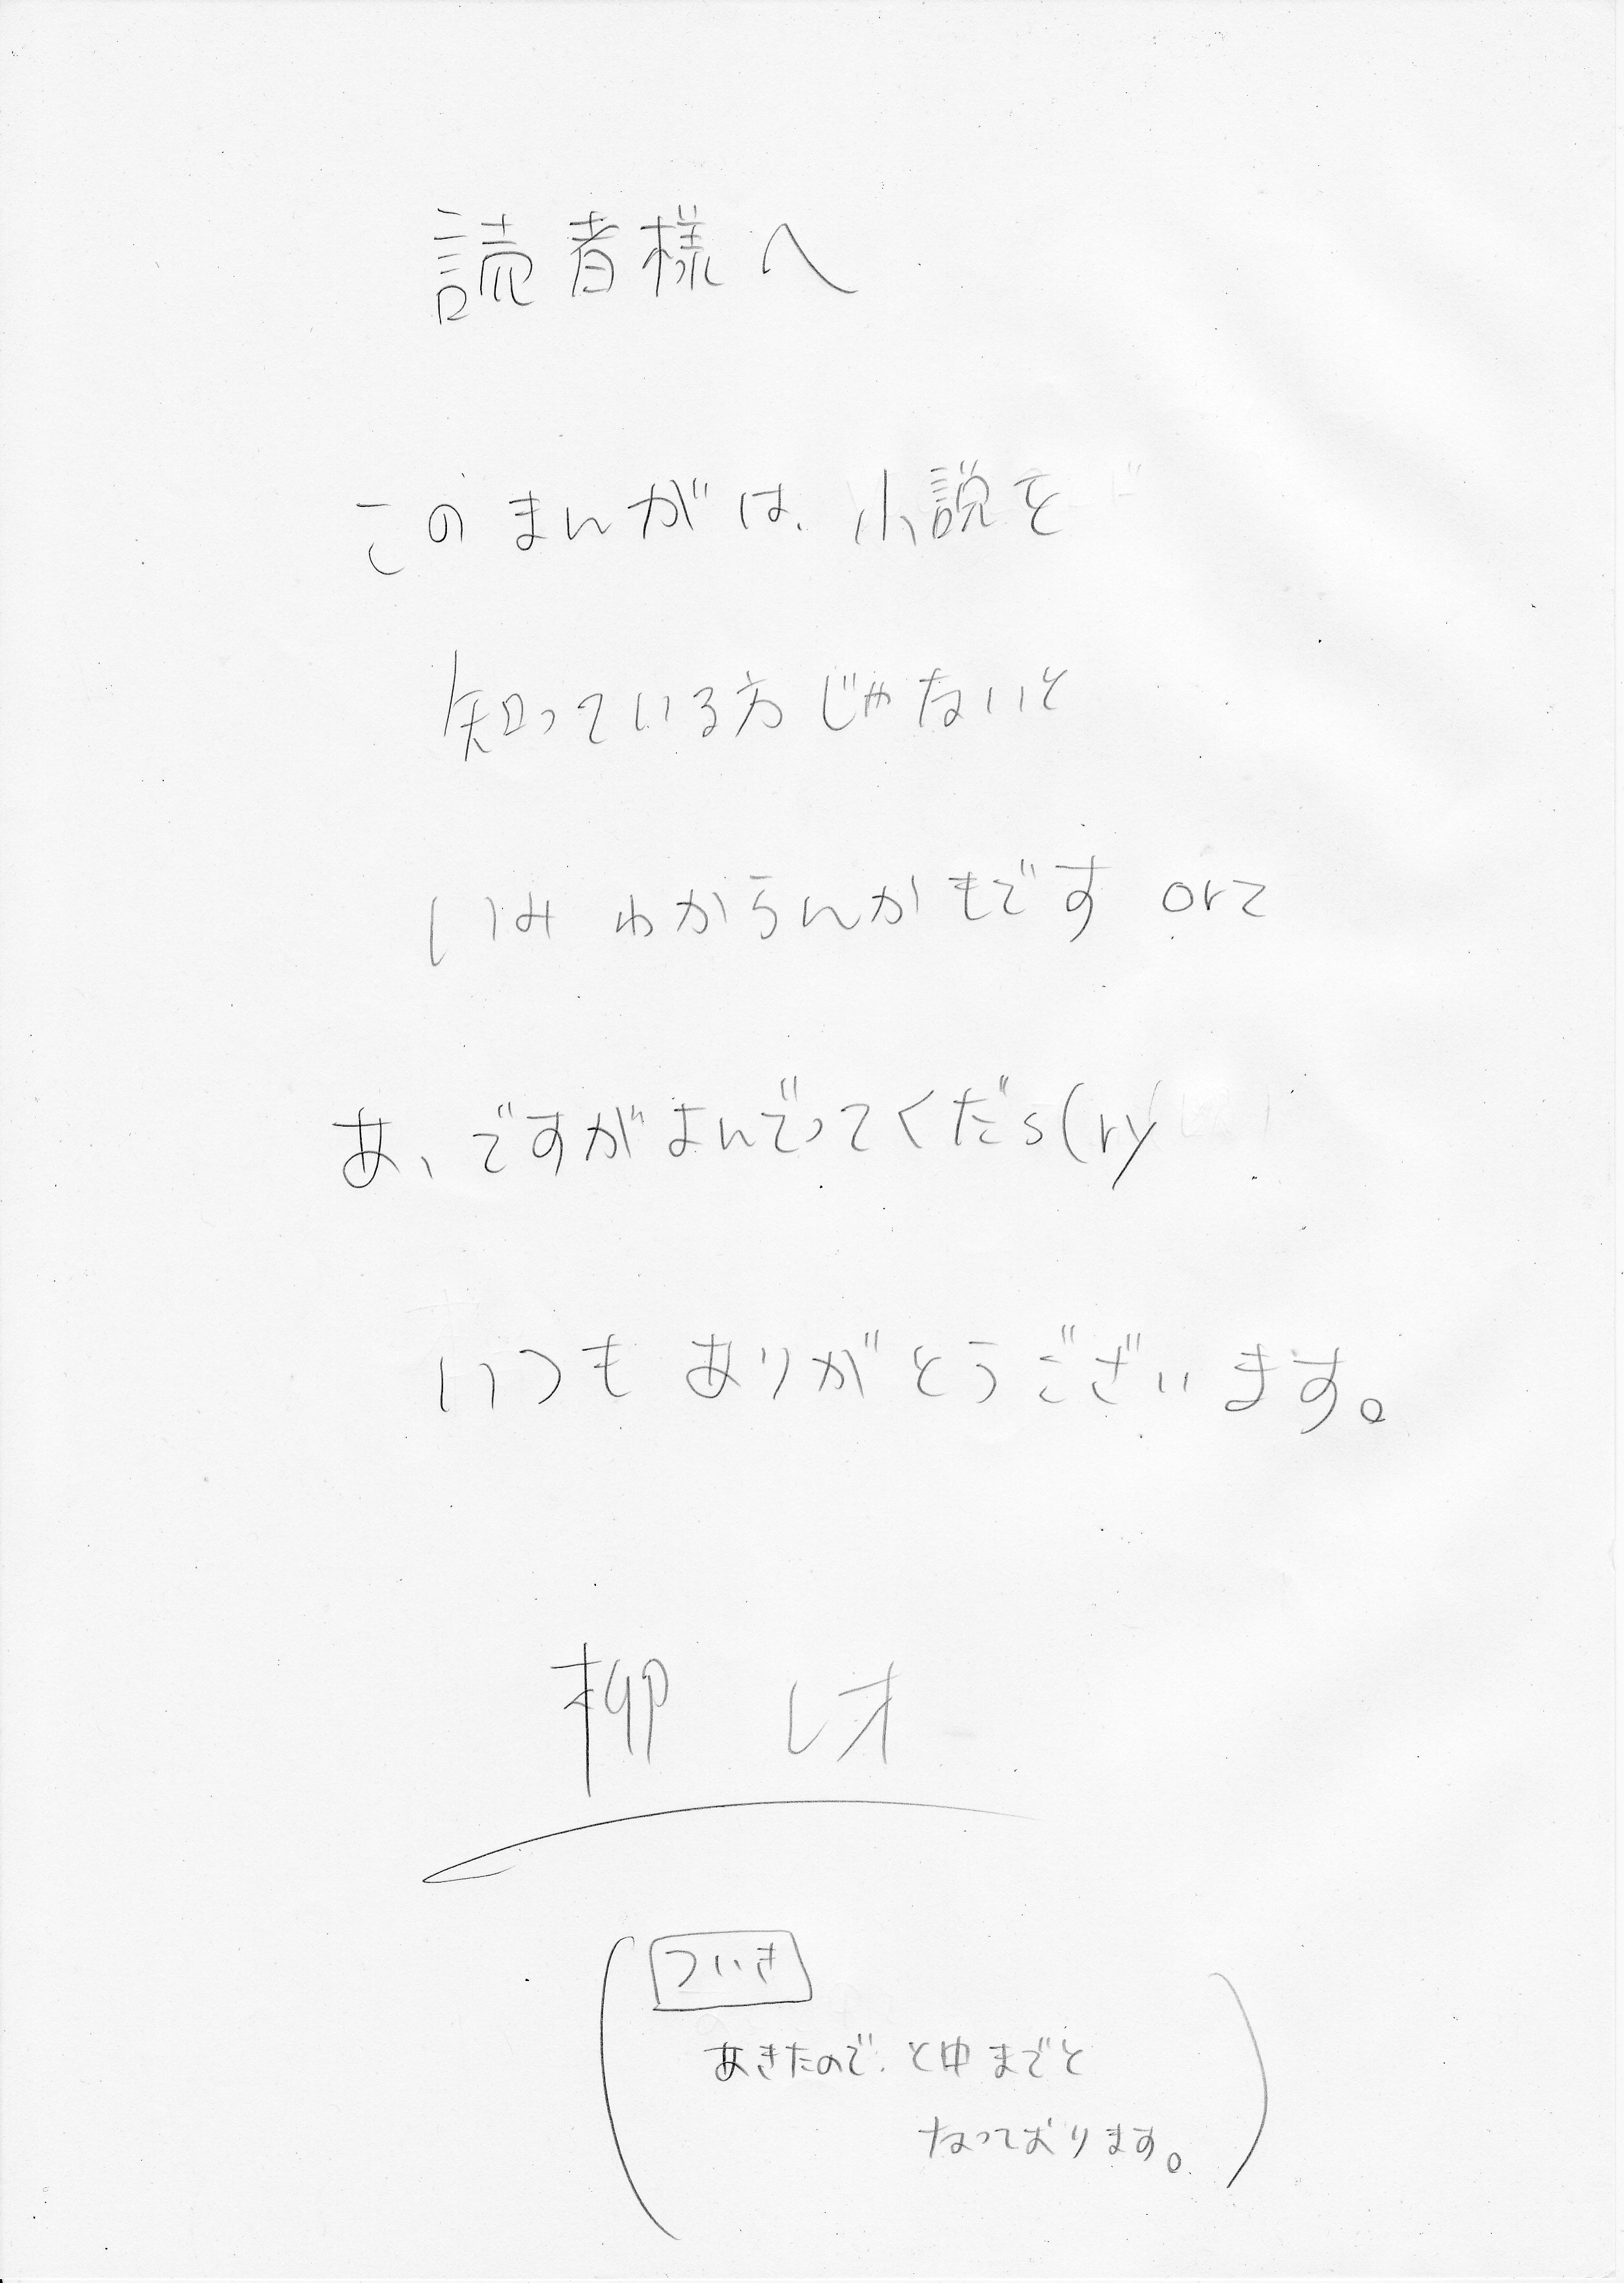 読者様へ
このまんがは、小説を
知っている方じゃないと
いみわからんかもです orz
あ、ですがよんでってくださs(ry
いつもありがとうございます。
柳 レオ
ついき
あきたので、と中までと
なっております。